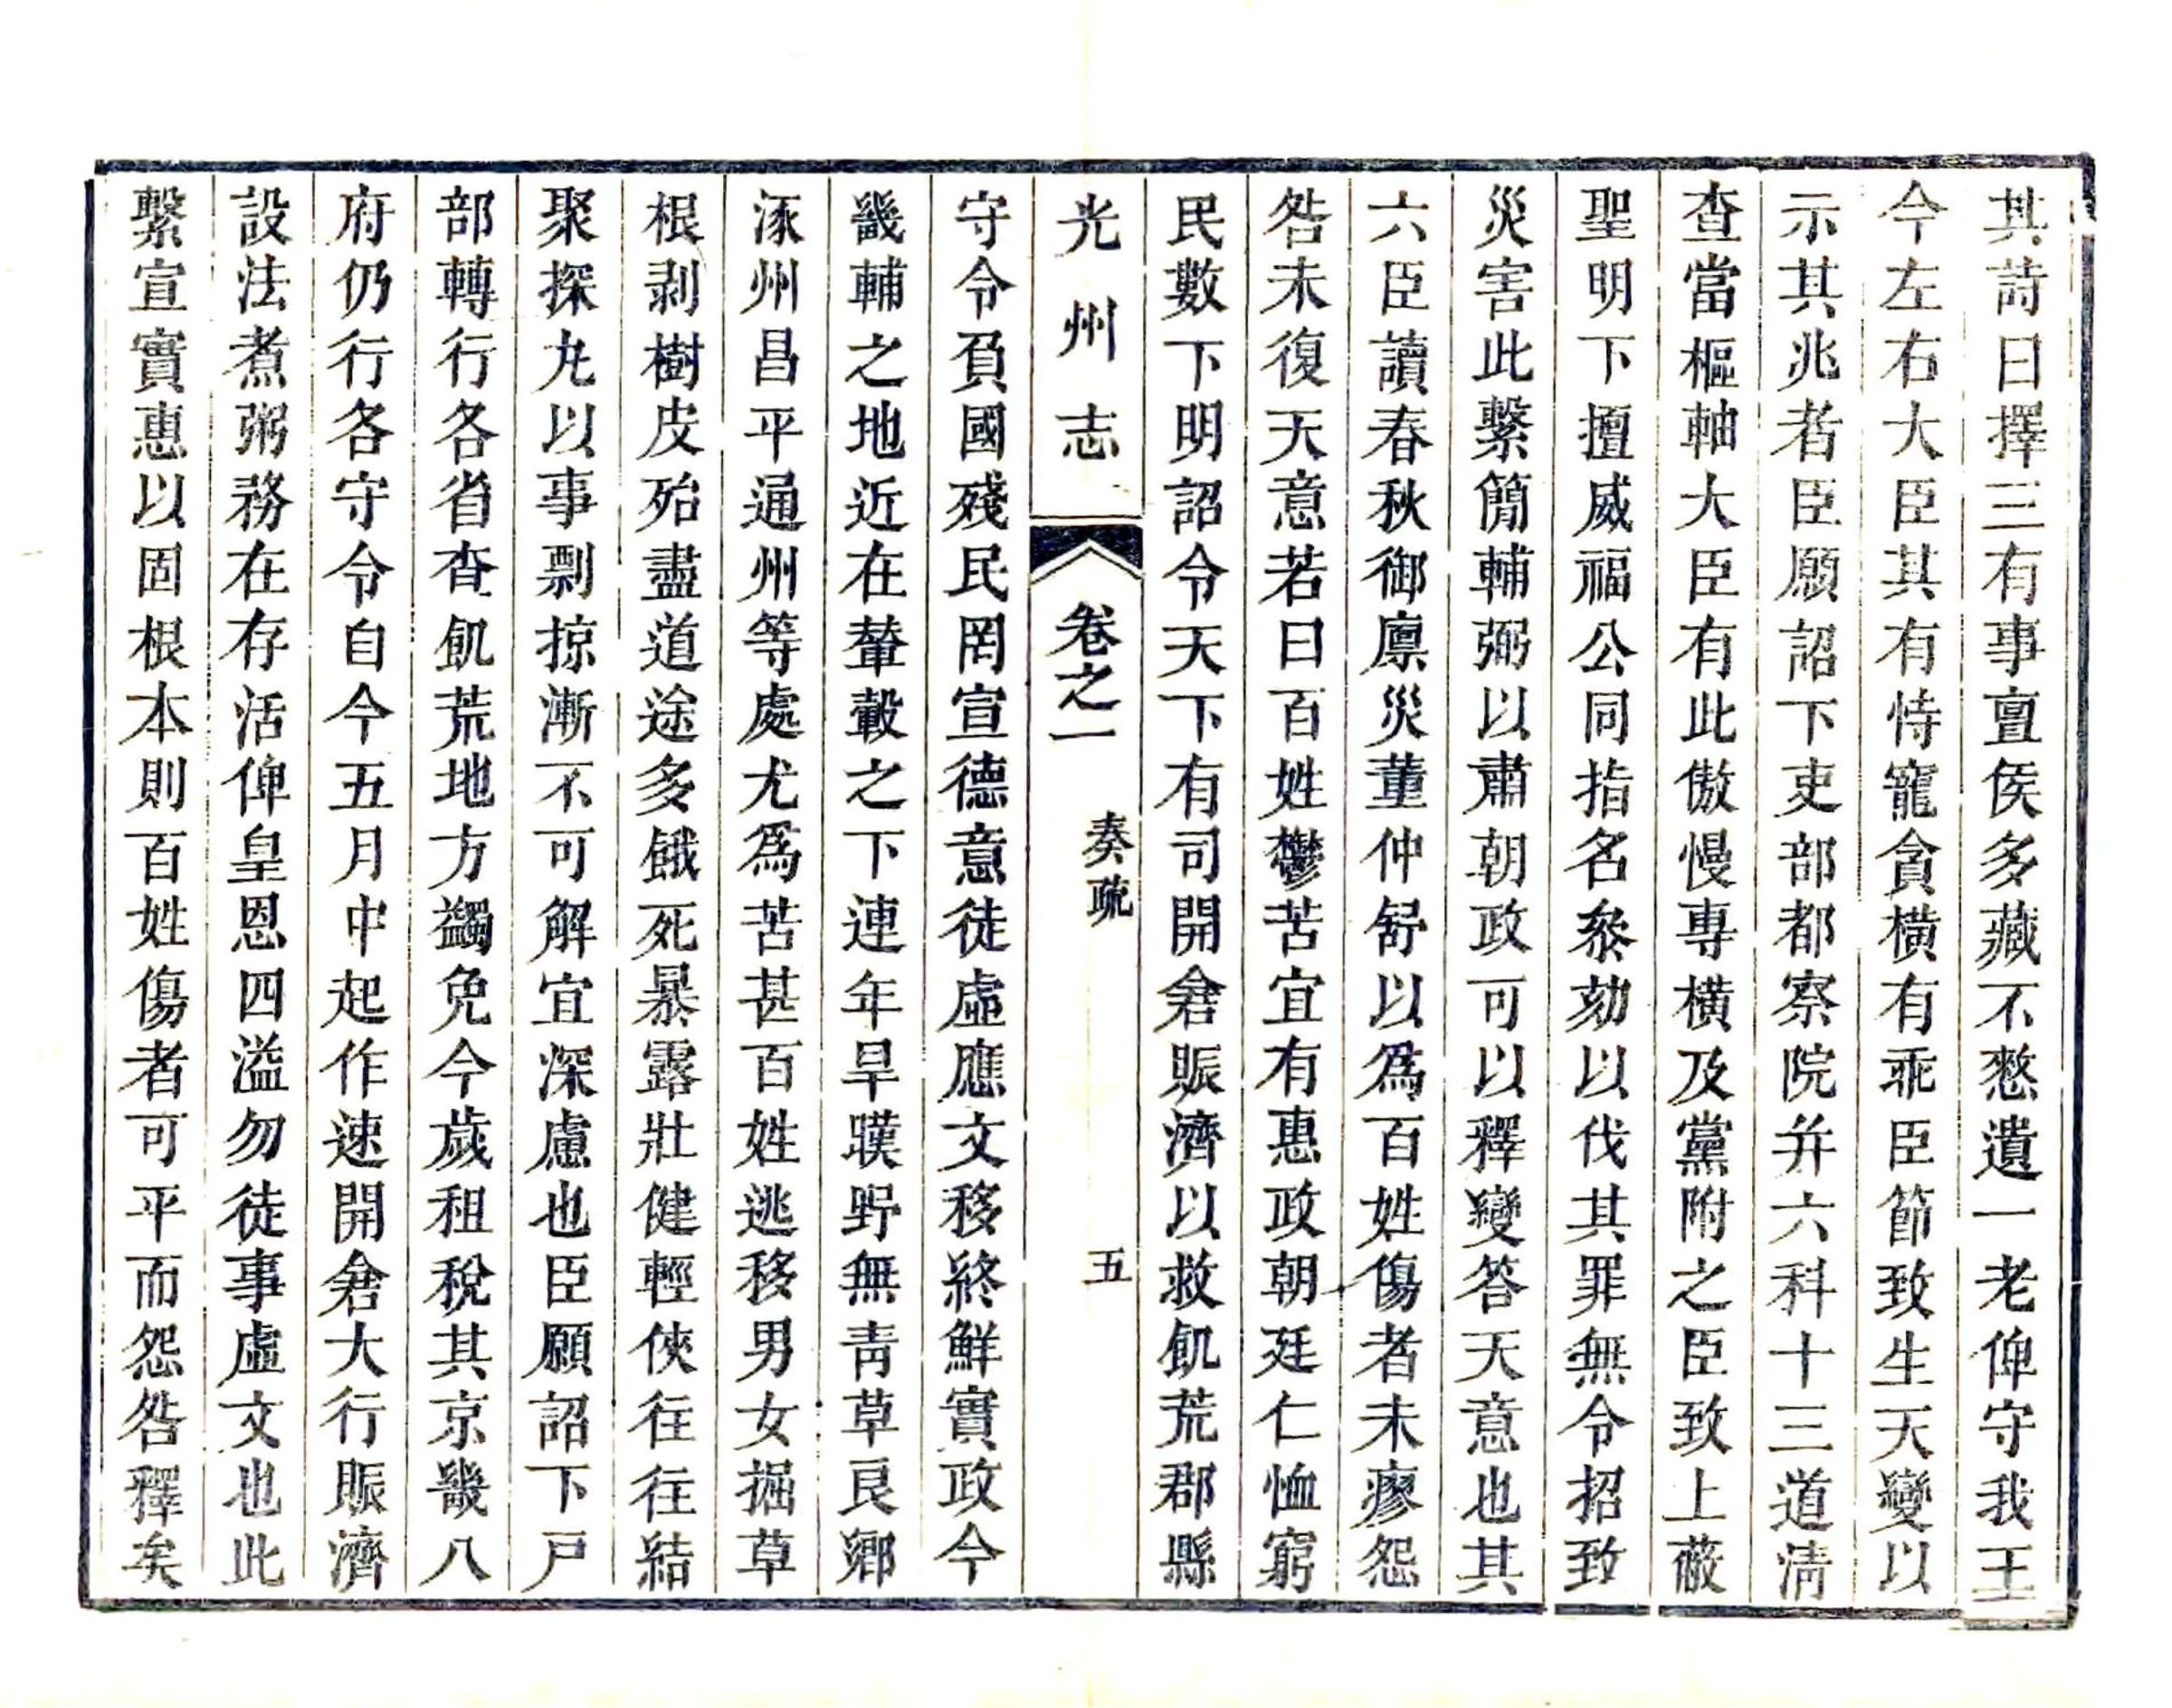 其詩曰擇三有事亶侯多藏不憖遺一老俾守我王
今左右大臣其有恃寵貪橫有乖臣節致生天變以
示其兆者臣願詔下吏部都察院并六科十三道清
查當樞軸大臣有此傲慢專橫及黨附之臣致上蔽
聖明下擅威福公同指名叅劾以伐其罪無令招致
災害此繫簡輔弼以肅朝政可以釋變答天意也其
六臣讀春秋御廩災董仲舒以為百姓傷者未瘳怨
咎未復天意若曰百姓鬱苦宜有惠政朝廷仁恤窮
民數下明詔令天下有司開倉賑濟以救飢荒郡縣
光州志 卷之一 奏疏 五
守令負國殘民罔宣德意徒虛應文移終鮮實政今
畿輔之地近在輦轂之下連年旱暵野無青草良鄉
涿州昌平通州等處尤為苦甚百姓逃移男女掘草
根剥樹皮殆盡道途多餓死暴露壯健輕俠往往結
聚探丸以事剽掠漸不可解宜深慮也臣願詔下戶
部轉行各省查飢荒地方蠲免今歲租稅其京畿八
府仍行各守令自今五月中起作速開倉大行賑濟
設法煮粥務在存活俾皇恩四溢勿徒事虛文也此
繫宣實惠以固根本則百姓傷者可平而怨咎釋矣